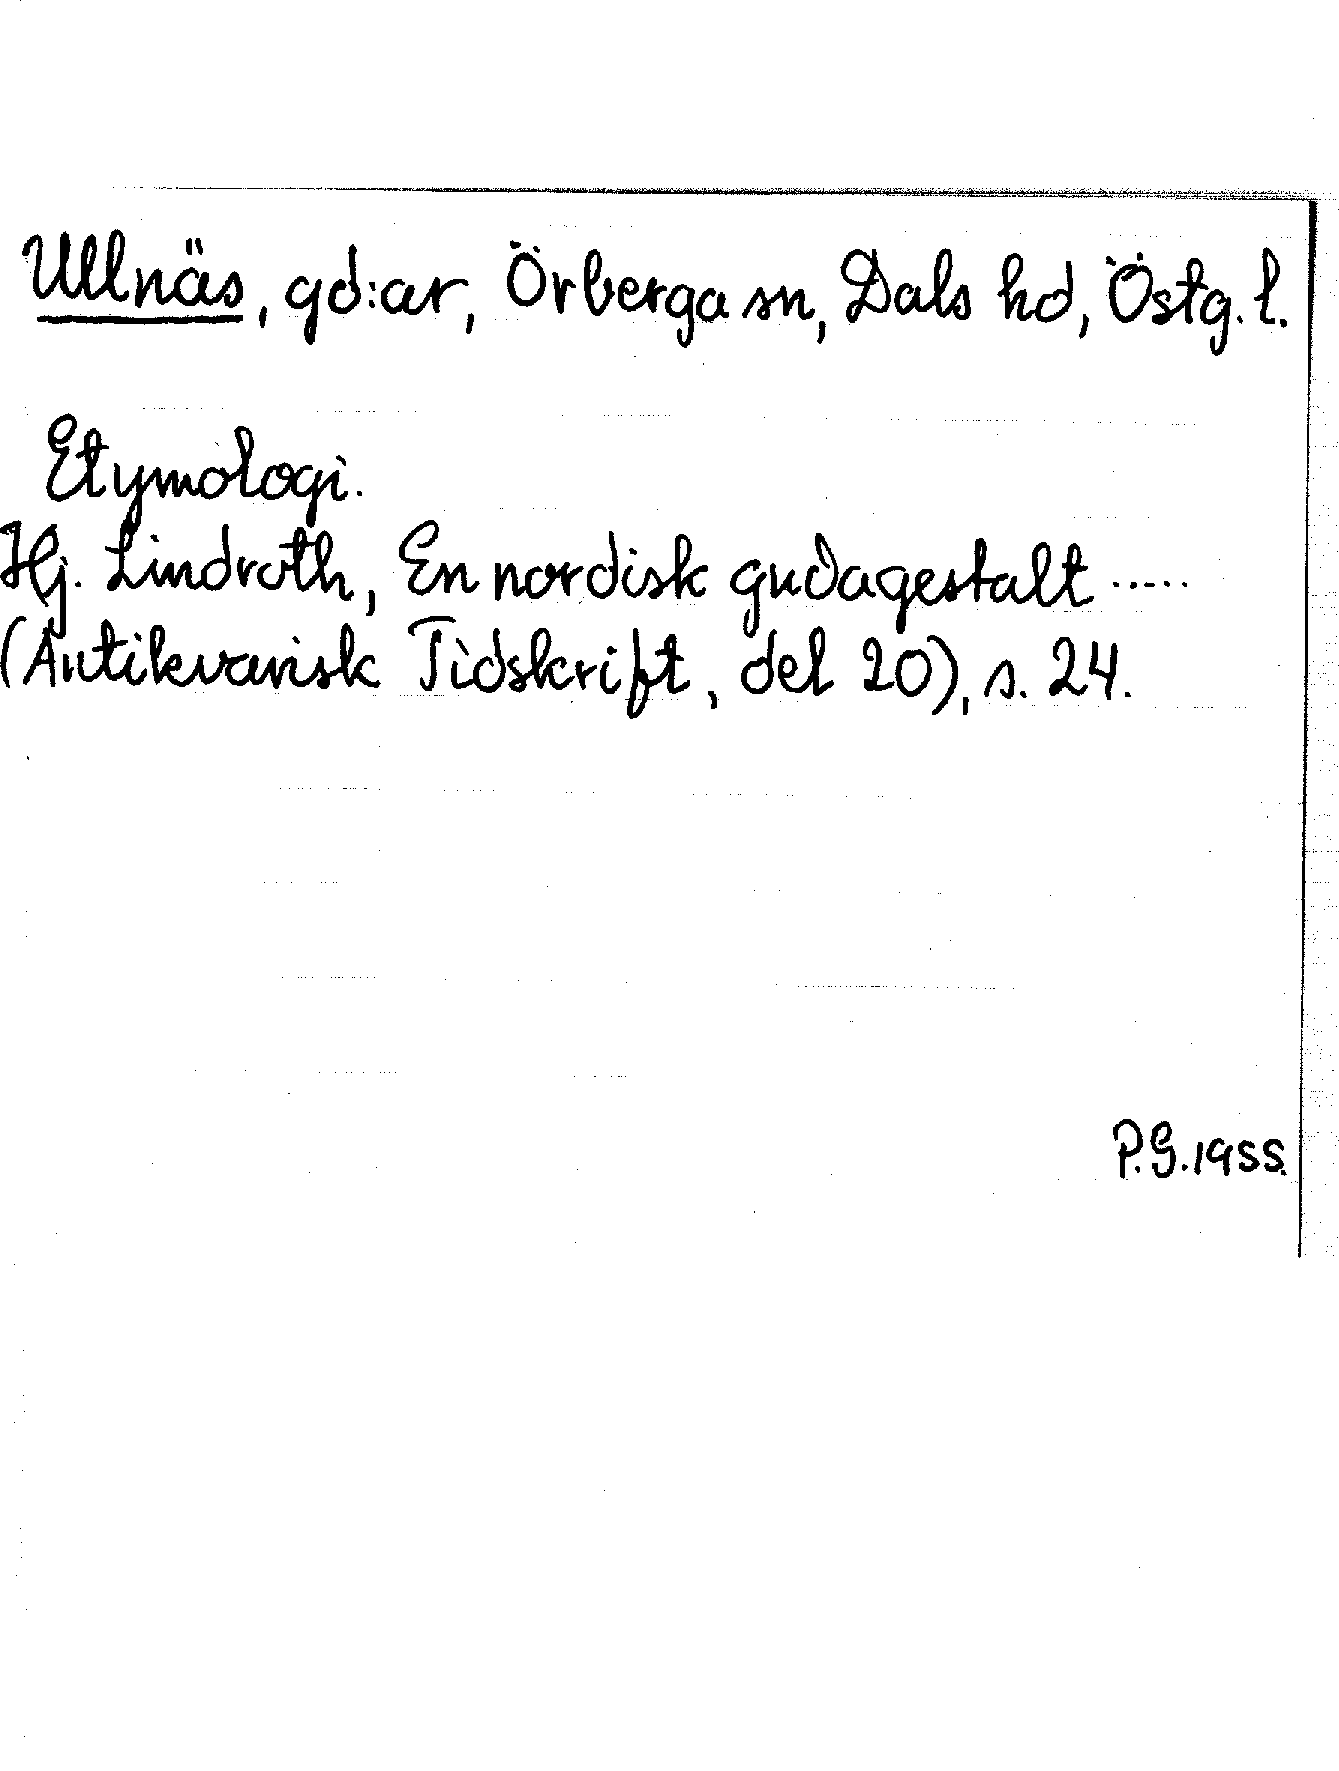 Ullnäs, gd:ar, Örberga sn, Dals hd, Östg. l.
Etymologi.
Hj. Lindroth, En nordisk gudagestalt .....
(Antikvarisk Tidskrift, del 20), s. 24.
P.G. 1955.